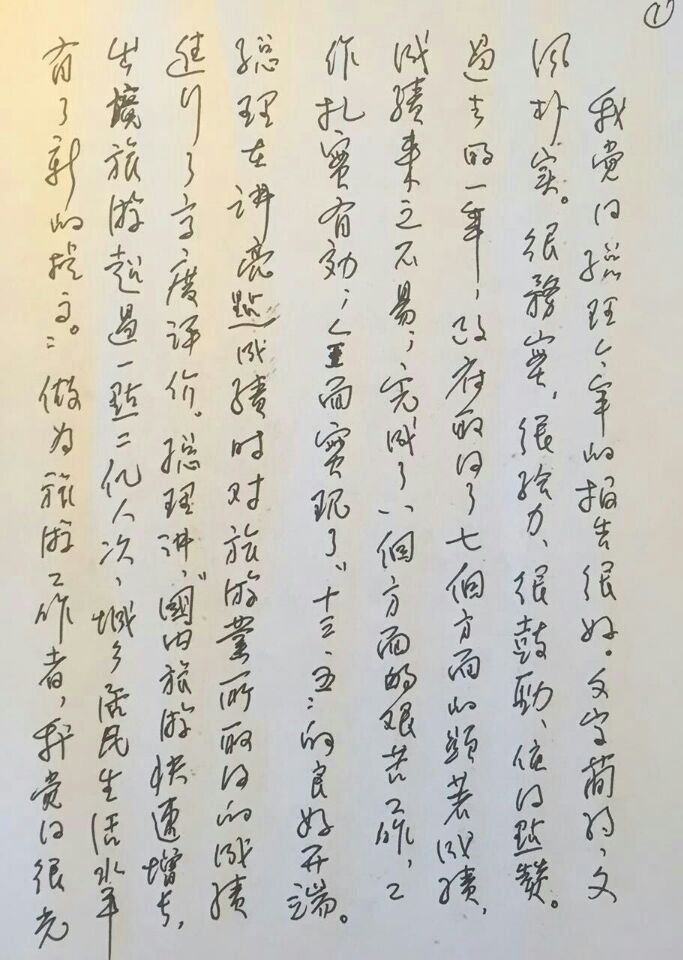 ①
我觉得總理今年的报告很好。文字简约、文
风朴実。很務實、很给力、很鼓勁、值得點赞。
過去的一年，政府取得了七個方面的顕著成績，
成績来之不易，完成了八個方面的艰苦工作，工
作扎實有効，全面實现了"十三·五"的良好开端。
總理在讲亮點成績时对旅游業所取得的成績
進行了高度评价。總理讲，"國内旅游快速增长，
出境旅游超過一點二亿人次，城乡居民生活水平
有了新的提高。"做为旅游工作者，我觉得很光